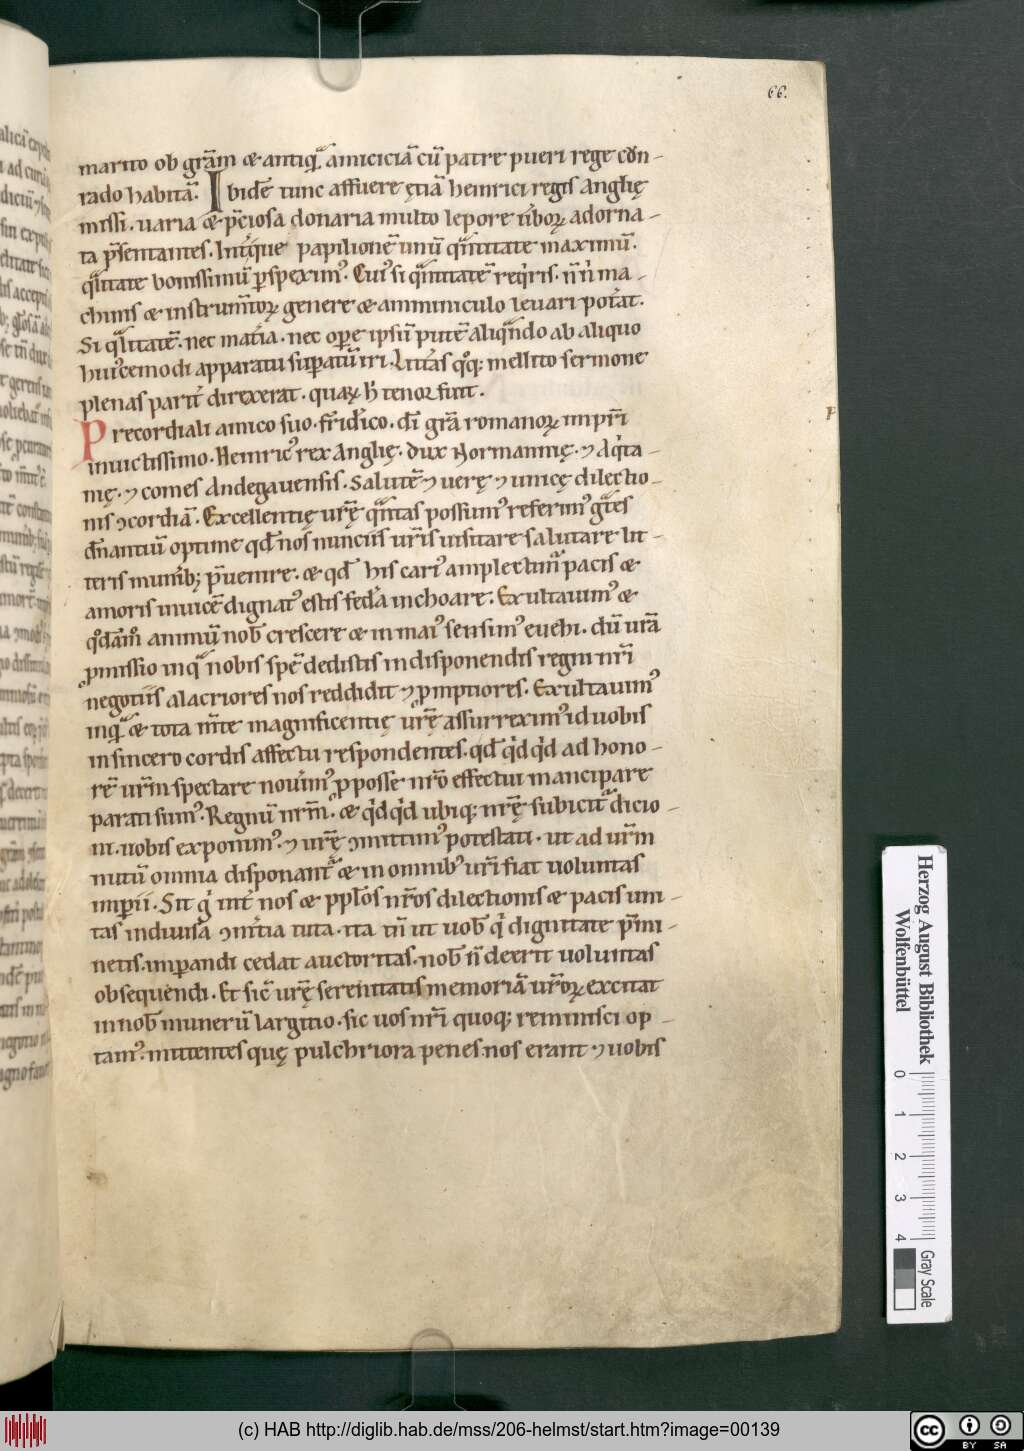 66.
marito ob gr̄am & antiq̄ᵃ amiciciā cū patre pueri rege con-
rado habitā. Ibidē tunc affuere ętiā heinrici regis Anglię
missi. uaria & p̄ciosa donaria multo lepore ūborꝝ adorna-
ta p̄sentantes. Int̄que papilionē unū qᵃntitate maximū.
qᵃlitate bonissimū ꝑspexim᾽. Cui᾽ si qᵃntitatē reqͥris. n̄ nͥ ma-
chinis & instrum̄torꝝ genere & amminiculo leuari pot̄at.
Si qᵃlitatē. nec mat̄ia. nec oꝑe ipsū putē aliqᵃndo ab aliquo
hui᾽cemodi apparatu suꝑatū iri. Litt̄as qͦqꝫ mellito sermone
plenas parit̄ direxerat. quaꝝ h̄ tenor fuit.
Precordiali amico suo. frid̄ico. dī gr̄a romanorꝝ impr̄i
inuictissimo. Heinric᾽ rex Anglię. dux Normannię. ⁊ Aqͥta-
nię. ⁊ comes Andegauensis. Salutē ⁊ uerę ⁊ unicę dilectio-
nis ꝯcordiā. Excellentię ur̄ę qᵃntas possum᾽ referim᾽ gᵃtes
dn̄antiū optime qd̄ nos nunciis ur̄is uisitare salutare lit-
teris munīb; p̄uenire. & qd̄ his cari᾽ amplectim᷑ pacis &
amoris inuicē dignat᾽ estis fed̄a inchoare. Exultauim᾽ &
qͦdāmͦ animū nob̄ crescere & in mai᾽ sensim᾽ euehi. dū ur̄a
ꝓmissio in qᵃ nobis spē dedistis in disponendis regni nr̄i
negotiis alacriores nos reddidit ⁊ ꝓmptiores. Exultauim᾽
inqᵃ & tota m̄te magnificentię ur̄ę assurrexim᾽ id uobis
in sincero cordis affectu respondentes. qd̄ qͥdqͥd ad hono-
rē ur̄m spectare nouim᾽ ꝓ posse nr̄o effectui mancipare
parati sum᾽. Regnū nr̄m. & qͥdqͥd ubiqꝫ nr̄ę subicit᷑ dicio-
ni. uobis exponim᾽. ⁊ ur̄ę ꝯmittim᾽ potestati. ut ad ur̄m
nutū omnia disponant᷑ & in omnib᾽ ur̄i fiat uoluntas
imꝑii. Sit gͥ int̄ nos & ppl̄os nr̄os dilectionis & pacis uni-
tas indiuisa ꝯm̄tia tuta. ita tn̄ ut uob̄ qͥ dignitate p̄mi-
netis. imꝑandi cedat auctoritas. nob̄ n̄ deerit uoluntas
obsequendi. Et sic̄ ur̄ę serenitatis memoriā ur̄orꝝ excitat
in nob̄ munerū largitio. sic uos nr̄i quoqꝫ reminisci op-
tam᾽. mittentes quę pulchriora penes nos erant ⁊ uobis
Herzog August Bibliothek
Wolfenbüttel
0 1 2 3 4
Gray Scale
(c) HAB http://diglib.hab.de/mss/206-helmst/start.htm?image=00139
cc BY SA